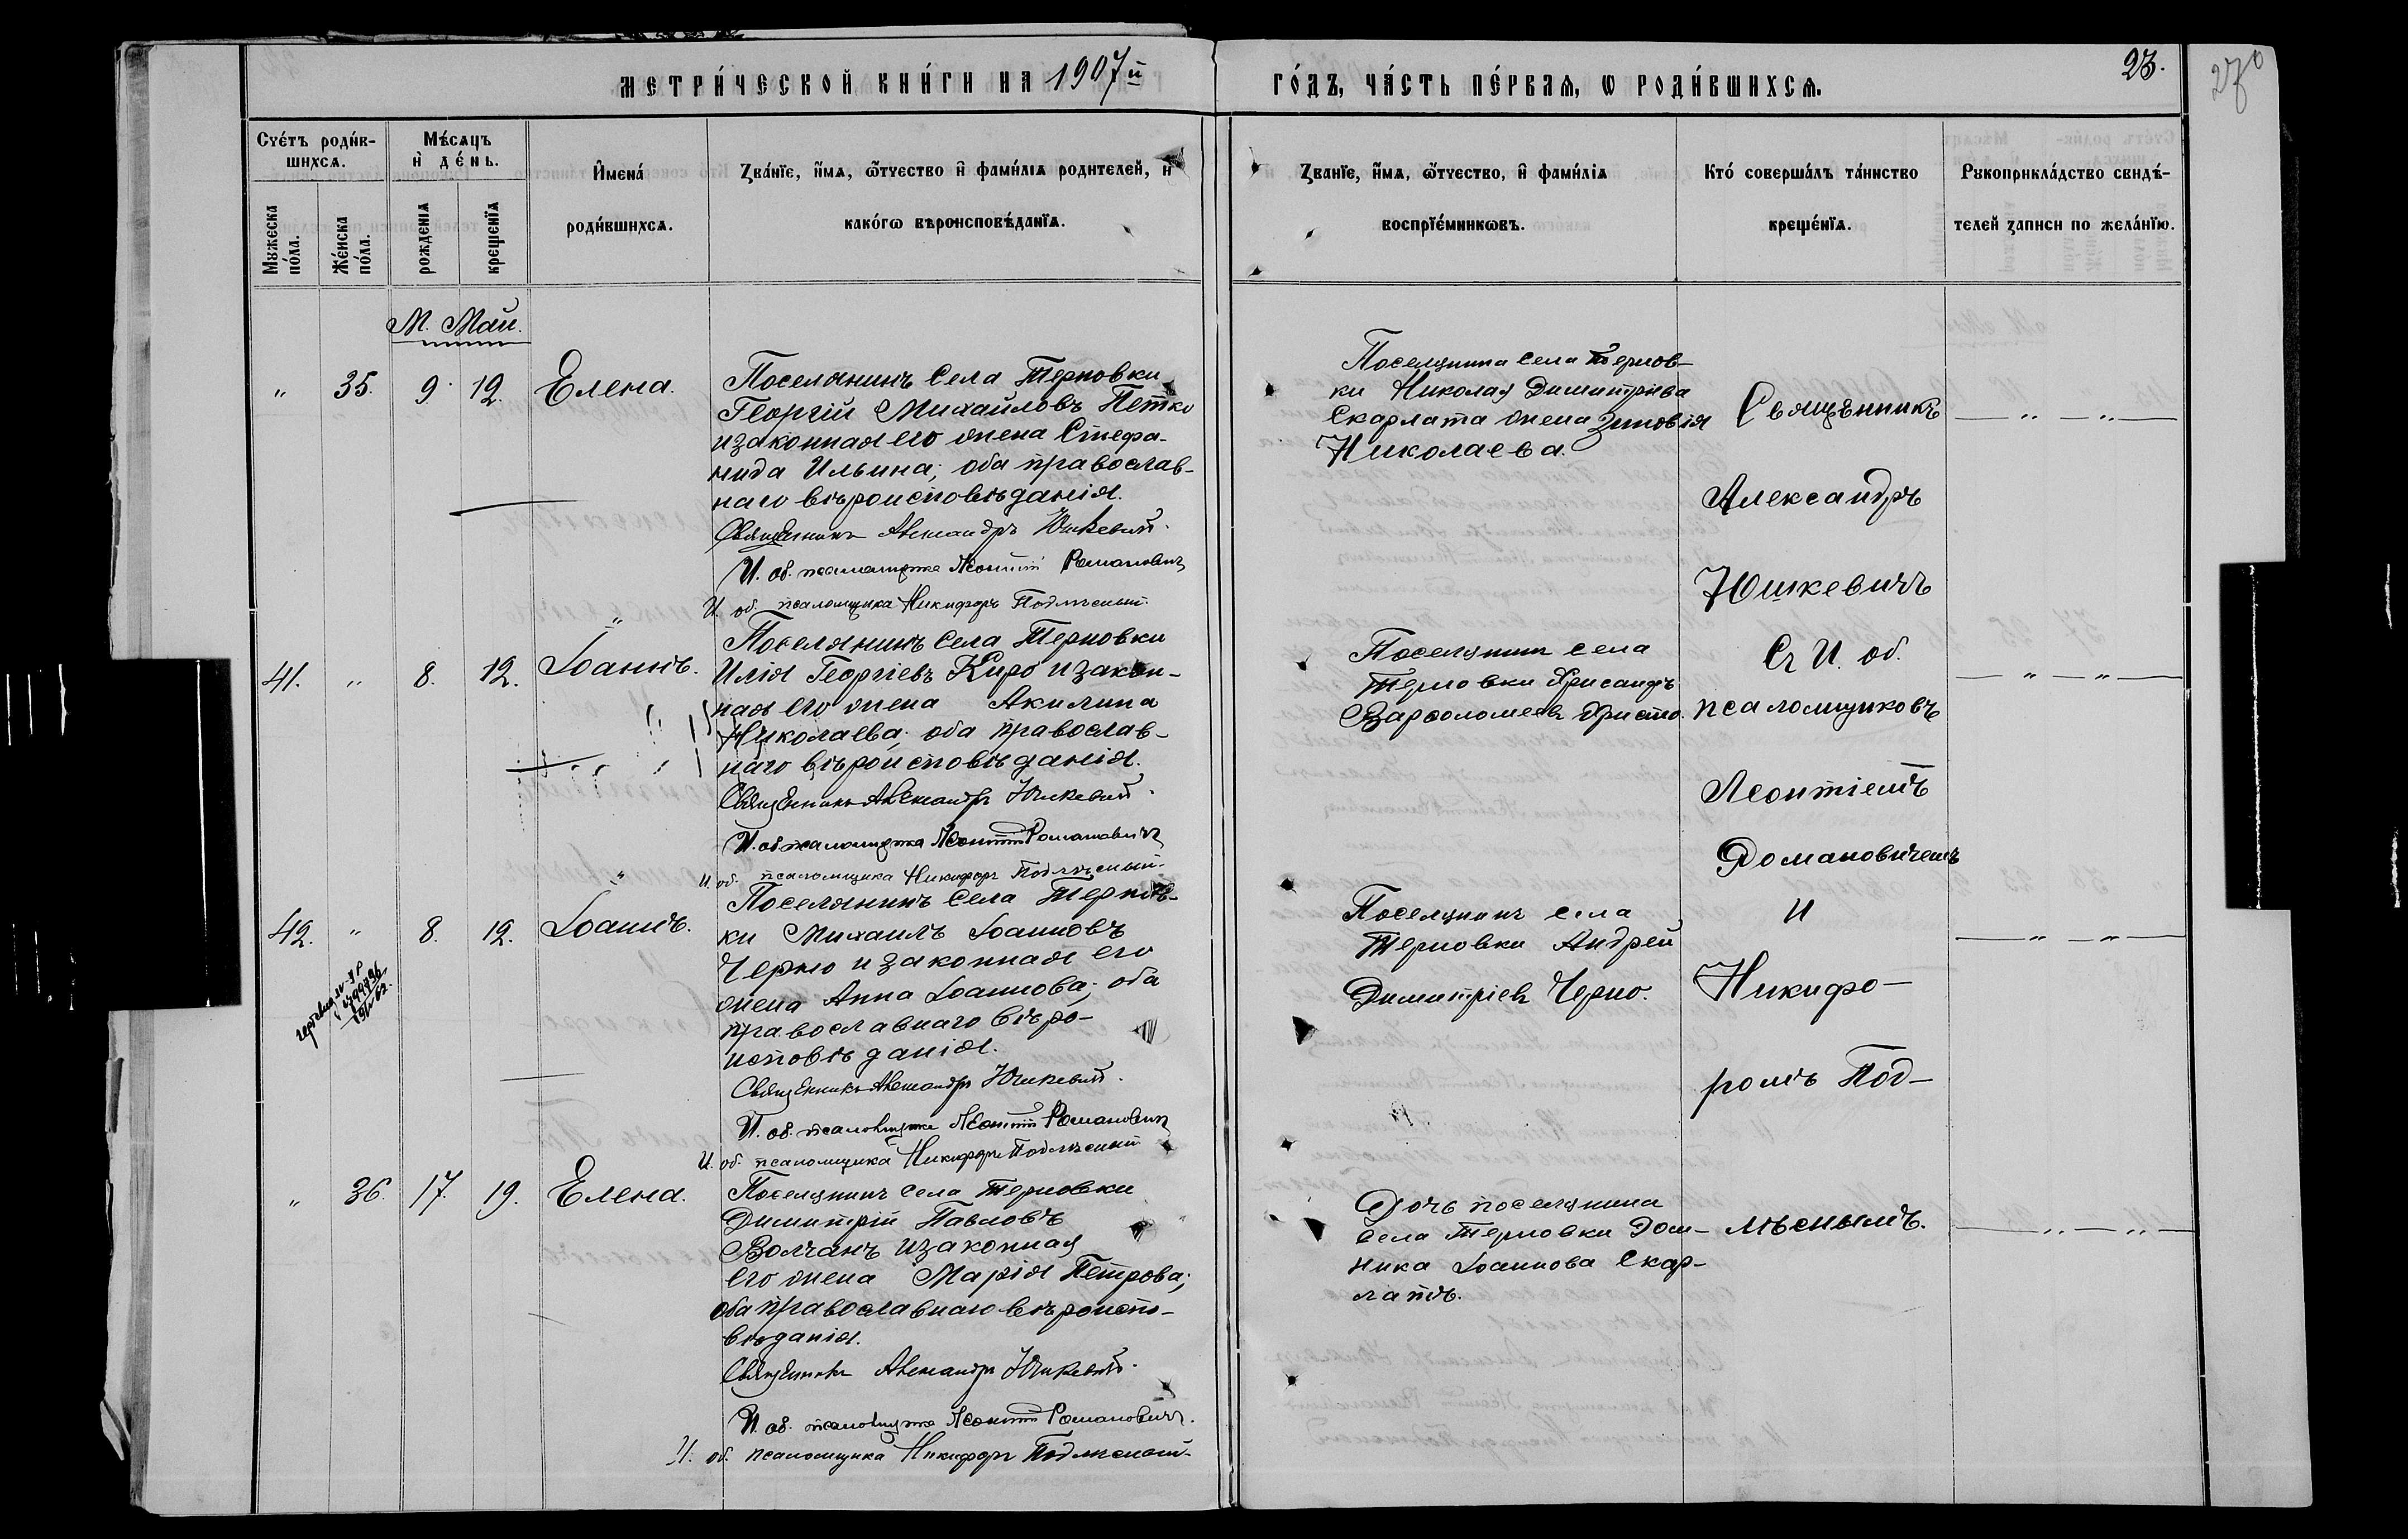 МЕТРИ́ЧЕСКОЙ КНИ́ГИ НА 1907й ГО́ДЪ, ЧА́СТЬ ПЕ́РВАЯ, Ѡ РОДИ́ВШИХСЯ.
23.
Сче́тъ роди́в-
шихся.
Мѣ́сяцъ
и҆ де́нь.
Мꙋжеска
по́ла.
Же́нска
по́ла.
рожденїѧ
крещенїѧ
И҆мена́
роди́вшихсѧ.
Зва́нїе, и҆́мѧ, ѻ҆́тчество и҆ фами́лїѧ родителей, и҆
како́гѡ вѣроисповѣ́данїѧ.
Зва́нїе, и҆́мѧ, ѻ҆́тчество, и҆ фами́лїѧ
воспрїе́мникѡвъ.
Кто́ соверша́лъ та́инство
креще́нїѧ.
Рꙋкоприкла́дство свидѣ́-
телей записи по жела́нїю.
М. Май.
" 35. 9. 12. Елена.
Поселянинъ села Терновки
Георгій Михайловъ Петко
и законная его жена Стефа-
нида Ильина; оба православ-
наго вѣроисповѣданія.
Священникъ Александръ Юшкевичъ.
И. об. псаломщика Леонтій Романовичъ
И. об. псаломщика Никифоръ Подлѣсный.
Поселянина села Тернов-
ки Николая Димитріева
Скарлата жена Зиновія
Николаева.
41. " 8. 12. Іоаннъ.
Поселянинъ села Терновки
Илія Георгіевъ Киро и закон-
ная его жена Акилина
Николаева; оба православ-
наго вѣроисповѣданія.
Священникъ Александръ Юшкевичъ.
И. об. псаломщика Леонтій Романовичъ
И. об. псаломщика Никифоръ Подлѣсный.
Поселянин села
Терновки Хрисанфъ
Варфоломеевъ Христо.
42. " 8. 12. Іоаннъ.
Поселянинъ села Тернов-
ки Михаилъ Іоанновъ
Черно и законная его
жена Анна Іоаннова; оба
православнаго вѣро-
исповѣданія.
Священникъ Александръ Юшкевичъ.
И. об. псаломщика Леонтій Романовичъ
И. об. псаломщика Никифоръ Подлѣсный
Поселянинъ села
Терновки Андрей
Димитріевъ Черно.
" 36. 17. 19. Елена.
Поселянинъ села Терновки
Димитрій Павловъ
Волчанъ и законная
его жена Марія Петрова;
оба православнаго вѣроиспо-
вѣданія.
Священникъ Александръ Юшкевичъ.
И. об. псаломщика Леонтій Романовичъ.
И. об. псаломщика Никифоръ Подлѣсный.
Дочь поселянина
села Терновки Дом-
ника Іоаннова Скар-
латъ.
Священникъ
Александръ
Юшкевичъ
Съ И. об.
псаломщиковъ
Леонтіемъ
Романовичемъ
И
Никифо-
ромъ Под-
лѣснымъ.